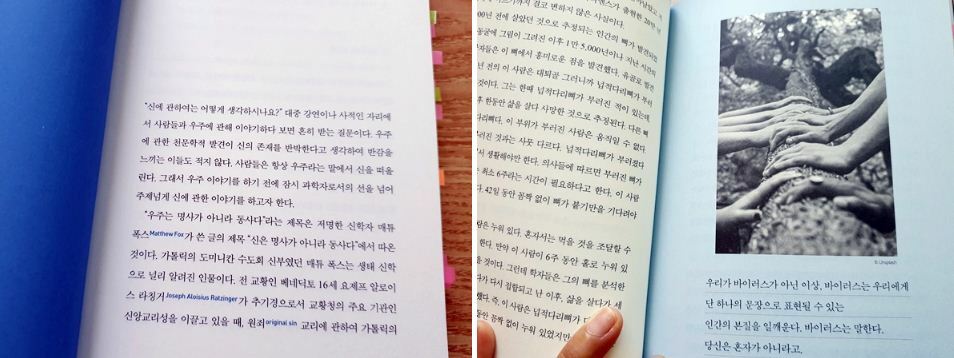 "신에 관하여는 어떻게 생각하시나요?" 대중 강연이나 사적인 자리에
서 사람들과 우주에 관해 이야기하다 보면 흔히 받는 질문이다. 우주
에 관한 천문학적 발견이 신의 존재를 반박한다고 생각하여 반감을
느끼는 이들도 적지 않다. 사람들은 항상 우주라는 말에서 신을 떠올
린다. 그래서 우주 이야기를 하기 전에 잠시 과학자로서의 선을 넘어
주제넘게 신에 관한 이야기를 하고자 한다.
"우주는 명사가 아니라 동사다"라는 제목은 저명한 신학자 매튜
폭스Matthew Fox가 쓴 글의 제목 "신은 명사가 아니라 동사다"에서 따온
것이다. 가톨릭의 도미니칸 수도회 신부였던 매튜 폭스는 생태 신학
으로 널리 알려진 인물이다. 전 교황인 베네딕토 16세 요제프 알로이
스 라칭거Joseph Aloisius Ratzinger가 추기경으로서 교황청의 주요 기관인
신앙교리성을 이끌고 있을 때, 원죄original sin 교리에 관하여 가톨릭의
르기까지 결코 변하지 않은 사실이다.
년 전에 살았던 것으로 추정되는 인간의 뼈가 발견되었
동굴에 그림이 그려진 이후 1만 5,000년이나 지난 시간의
자들은 이 뼈에서 흥미로운 점을 발견했다. 유골로 발견
년 전의 이 사람은 대퇴골 그러니까 넙적다리뼈가 부러
것이다. 그는 한때 넙적다리뼈가 부러진 적이 있는데,
후 한동안 삶을 살다 사망한 것으로 추정된다. 다른 뼈
다리뼈다. 이 부위가 부러진 사람은 움직일 수 없다.
부러진 것과는 사뭇 다르다. 넙적다리뼈가 부러졌다
서 생활해야만 한다. 의사들에 따르면 부러진 뼈가
최소 6주라는 시간이 필요하다고 한다. 이 사람
다. 42일 동안 꼼짝 없이 뼈가 붙기만을 기다려야
람은 누워 있다. 혼자서는 먹을 것을 조달할 수
한다. 만약 이 사람이 6주 동안 홀로 누워 있
을 것이다. 그런데 학자들은 그의 뼈를 분석한
가 다시 접합되고 난 이후, 삶을 살다가 세
했다. 즉, 이 사람은 넙적다리뼈가
동안 꼼짝 없이 누워 있었지만
© Unsplash
우리가 바이러스가 아닌 이상, 바이러스는 우리에게
단 하나의 문장으로 표현될 수 있는
인간의 본질을 일깨운다. 바이러스는 말한다.
당신은 혼자가 아니라고.